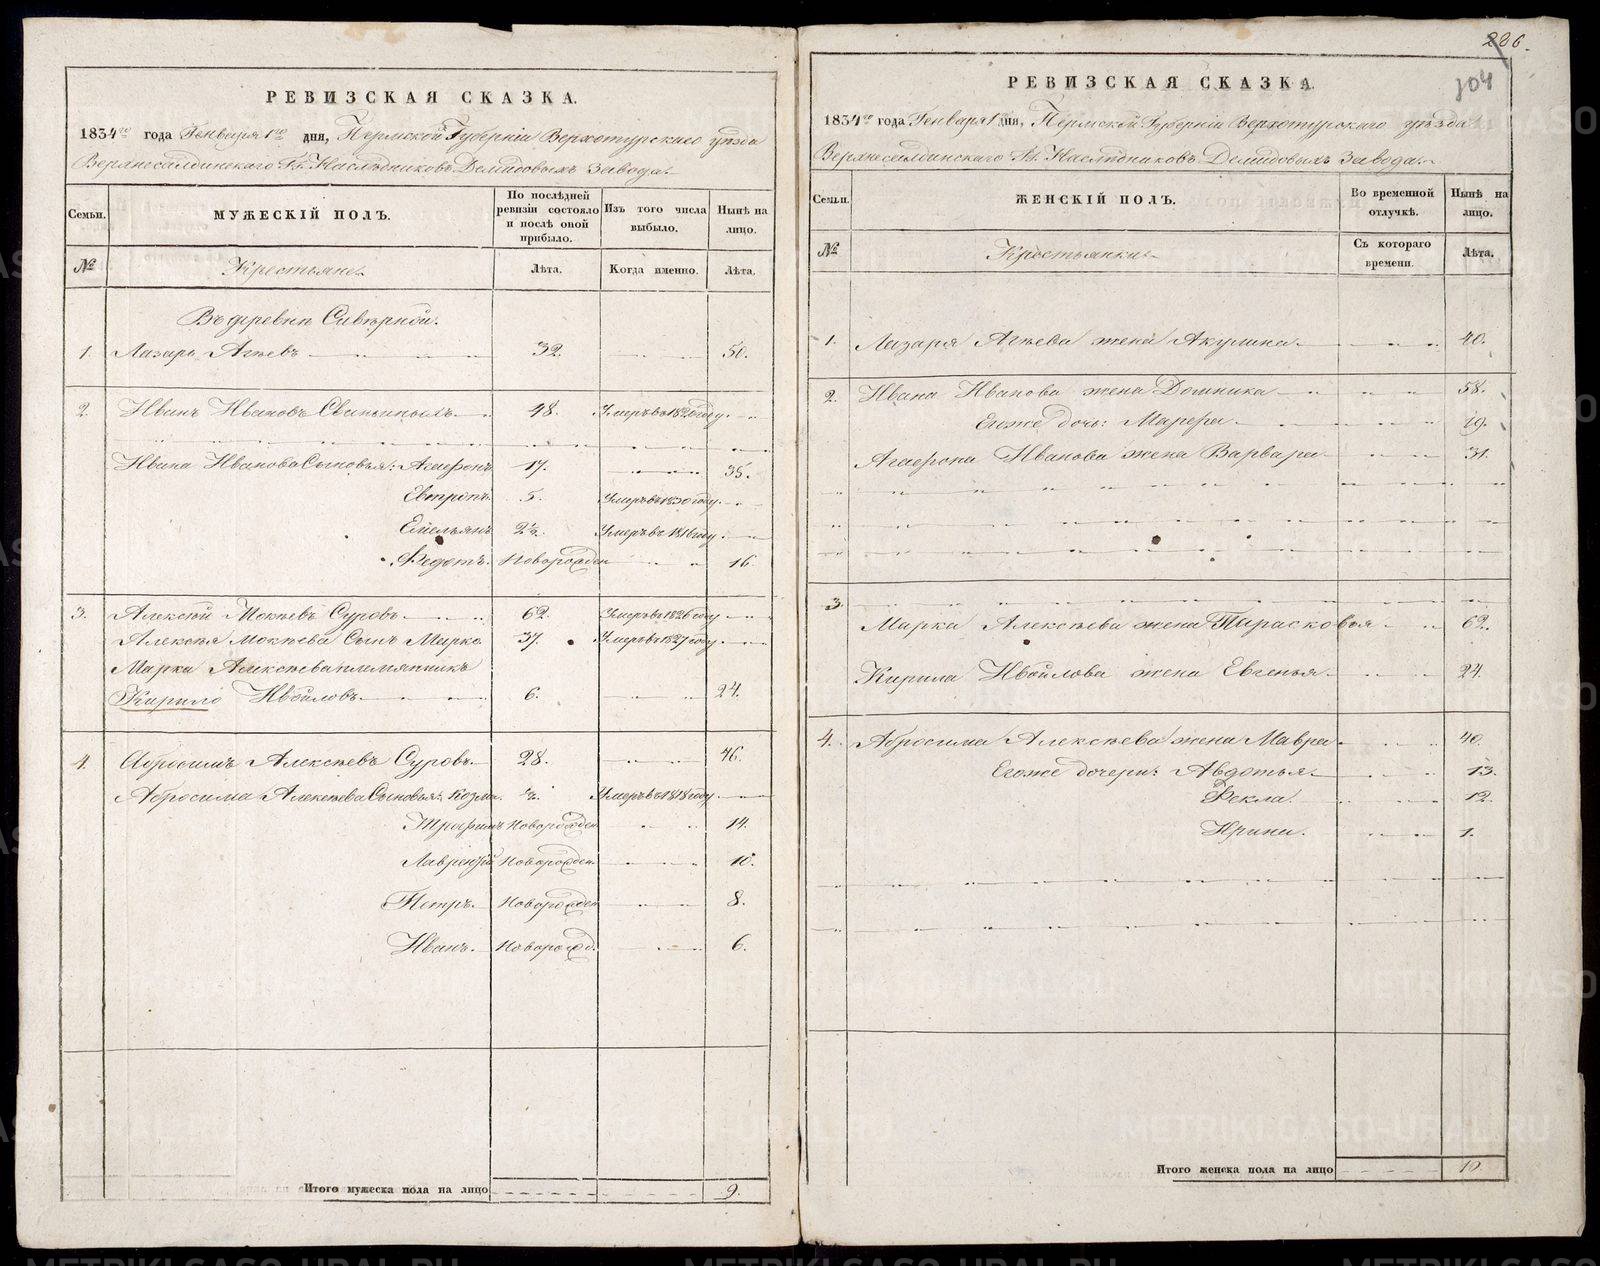 286.
104
РЕВИЗСКАЯ СКАЗКА.
1834го года Генваря 1го дня, Пермской Губерніи Верхотурскаго уѣзда
Верхнесалдинскаго Гг. Наслѣдниковъ Демидовыхъ завода.
Семьи.
МУЖЕСКІЙ ПОЛЪ.
По послѣдней ревизіи состояло и послѣ оной прибыло.
Изъ того числа выбыло.
Нынѣ на лицо.
№
Крестьяне.
Лѣта.
Когда именно.
Лѣта.
Въ деревнѣ Сѣверной.
1. Лазарь Агѣевъ 32. 50.
2. Иванъ Ивановъ 48. Умеръ въ 1820 году.
Ивана Иванова Сыновья: Агафонъ 17. 35.
Евтропъ. 5. Умеръ въ 1830 году.
Емельянъ 2½. Умеръ въ 1816 году.
Федотъ. Новорожден 16.
3. Алексѣй Мокѣевъ Суровъ 62. Умеръ въ 1826 году
Алексѣя Мокѣева Сынъ Марко 37. Умеръ въ 1827 году
Марка Алексѣева племянникъ
Кирило Ивойловъ 6. 24.
4. Абросимъ Алексѣевъ Суровъ. 28. 46.
Абросима Алексѣева Сыновья: Козма. ½. Умеръ въ 1818 году
Трофимъ Новорожден 14.
Лаврентій Новорожден. 10.
Петръ. Новорожден 8.
Иванъ. Новорожд. 6.
Итого мужеска пола на лицо 9.
РЕВИЗСКАЯ СКАЗКА.
1834го года Генваря 1 дня, Пермской Губерніи Верхотурскаго уѣзда
Верхнесалдинскаго Гг. Наслѣдниковъ Демидовыхъ завода.
Семьи.
ЖЕНСКІЙ ПОЛЪ.
Во временной отлучкѣ.
Нынѣ на лицо.
№
Крестьянки.
Съ котораго времени.
Лѣта.
1. Лазаря Агѣева жена Акулина. 40.
2. Ивана Иванова жена Домника 58.
Егоже дочь: Марфа 19.
Агафона Иванова жена Варвара 31.
3.
Марка Алексѣева жена Парасковья 62.
Кирила Ивойлова жена Евгенья 24.
4. Абросима Алексѣева жена Мавра 40.
Егоже дочери: Авдотья 13.
Фекла. 12.
Ирина. 1.
Итого женска пола на лицо 10.
METRIKI.GASO-URAL.RU